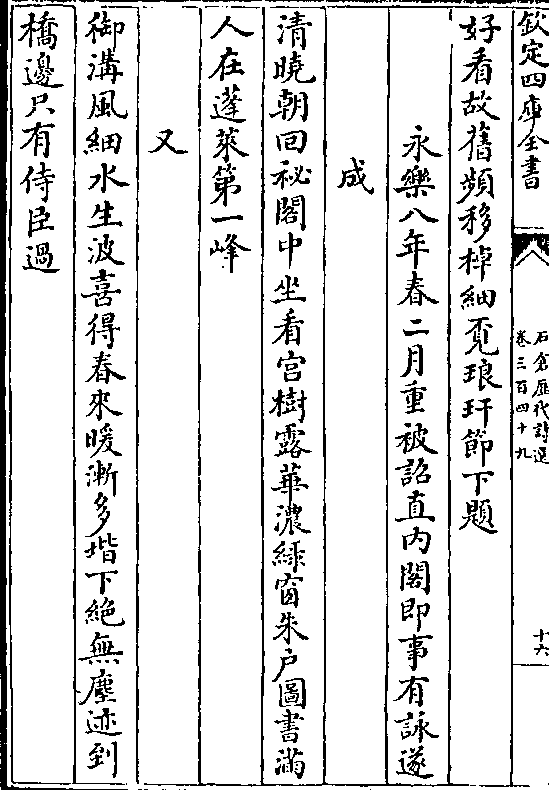 欽定四庫全書
石倉歷代詩選
卷三百四十九
十六
好看故舊頻移棹細覓琅玕節下題
永樂八年春二月重被詔直內閣即事有詠遂
成
清曉朝回祕閣中坐看宫樹露華濃緑窗朱戶圖書滿
人在蓬萊第一峰
又
御溝風細水生波喜得春來暖漸多堦下絶無塵迹到
橋邊只有侍臣過